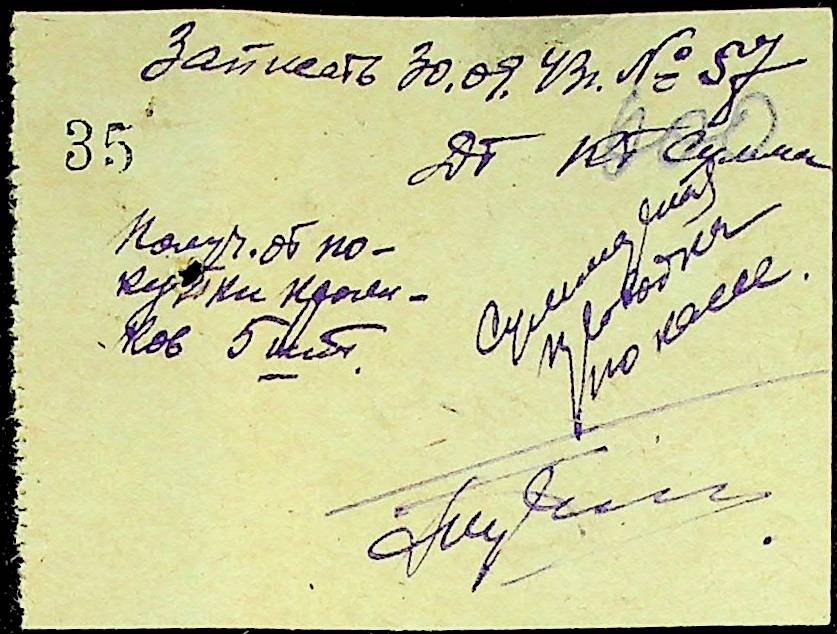 Записать 30.09.43г. № 57
35
400
Дт Кт Сумма
Получ. от по-
купки кроли-
ков 5 шт.
Сумма дана
проводка
по кассе.